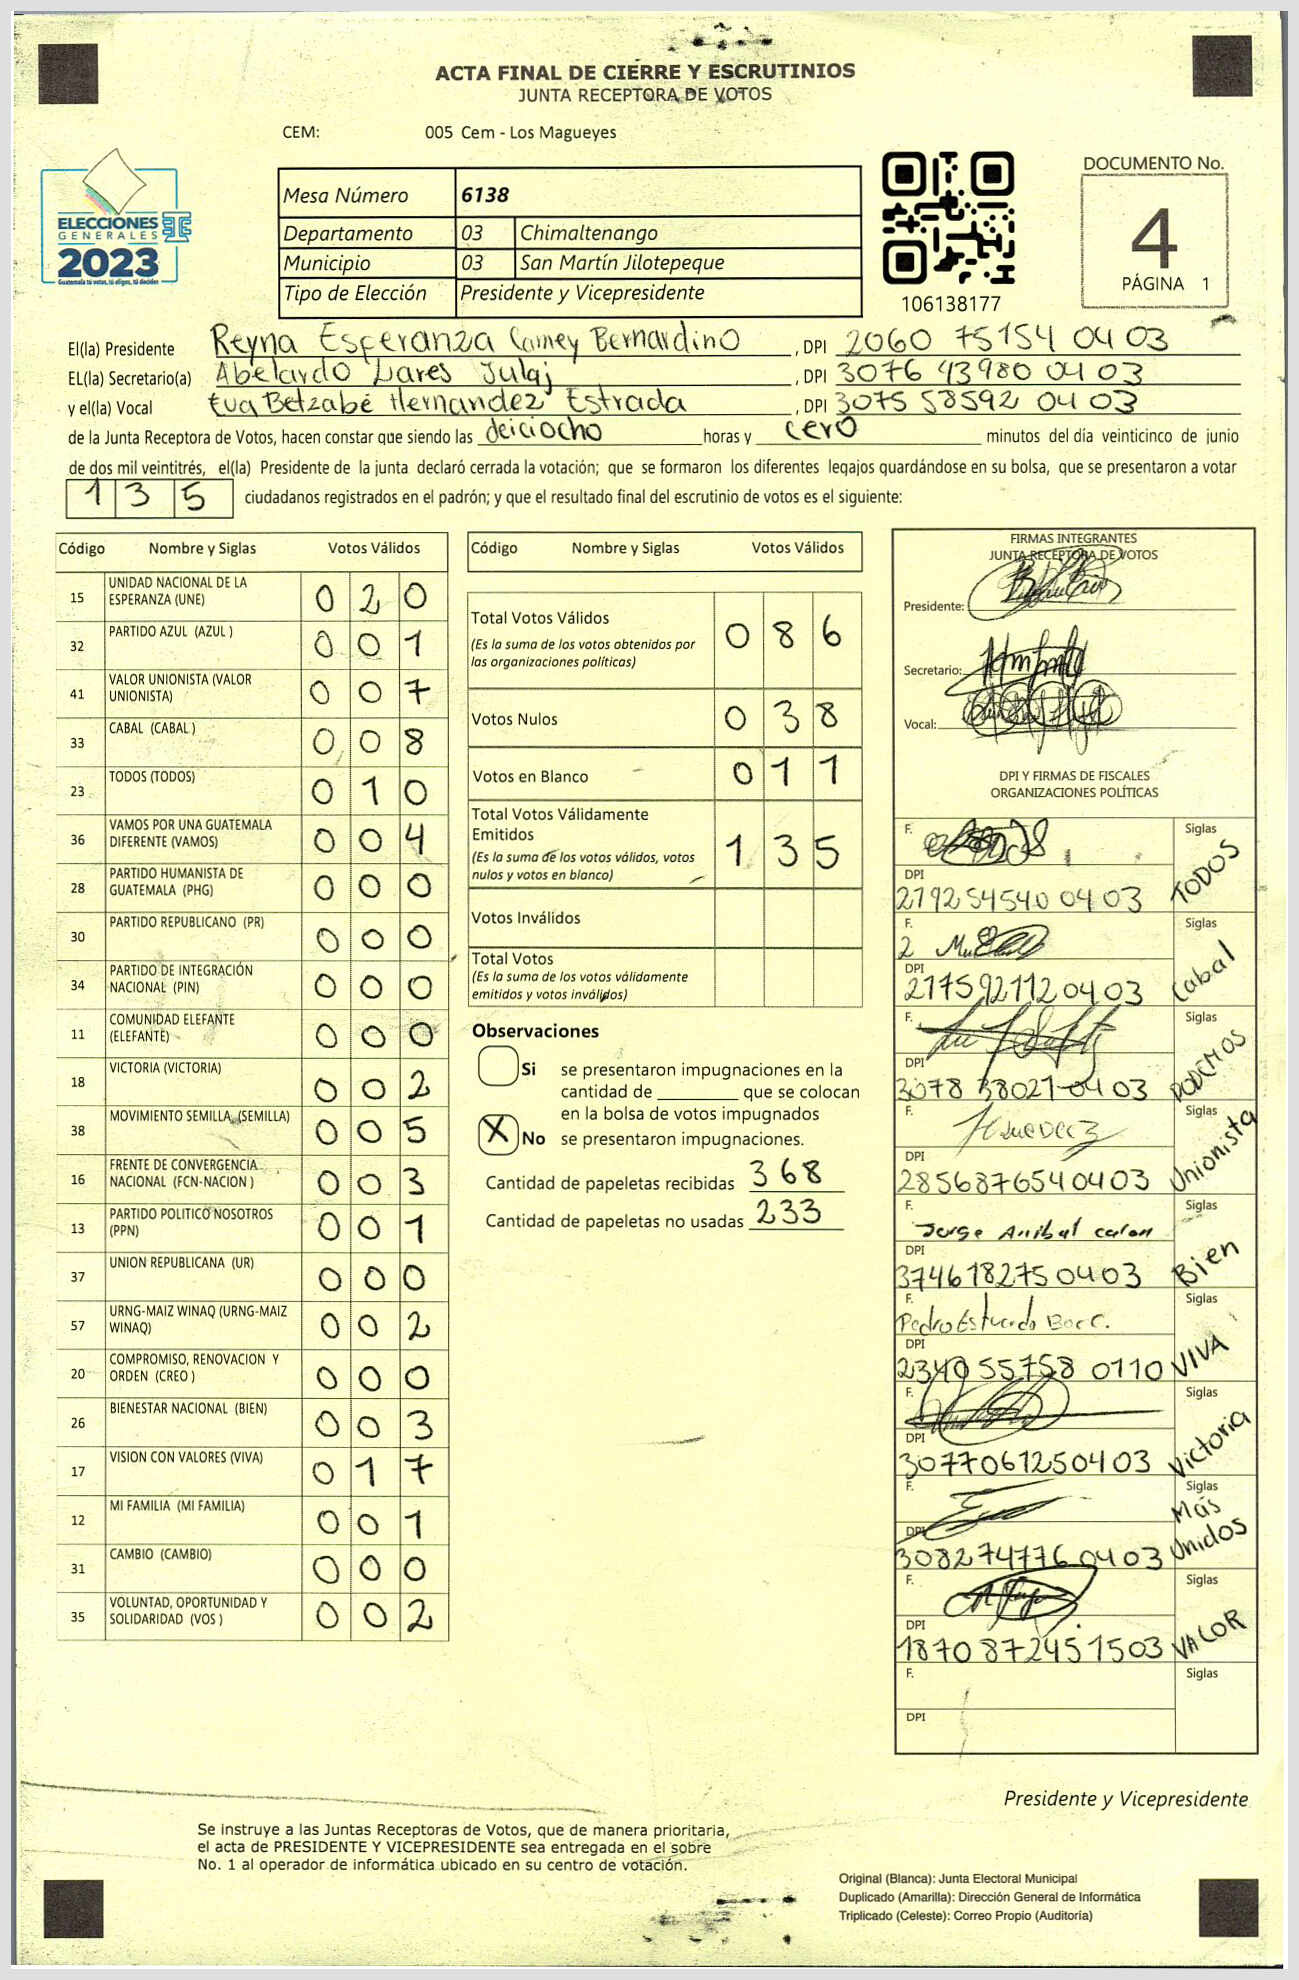 ACTA FINAL DE CIERRE Y ESCRUTINIOS
JUNTA RECEPTORA DE VOTOS
CEM: 005 Cem - Los Magueyes
ELECCIONES
GENERALES
2023
Guatemala tú votas, tú eliges, tú decides
Mesa Número 6138
Departamento 03 Chimaltenango
Municipio 03 San Martín Jilotepeque
Tipo de Elección Presidente y Vicepresidente
106138177
DOCUMENTO No.
4
PÁGINA 1
El(la) Presidente Reyna Esperanza Camey Bernardino , DPI 2060 75154 0403
EL(la) Secretario(a) Abelardo Lares Julaj , DPI 3076 43980 0403
y el(la) Vocal Eva Betzabé Hernandez Estrada , DPI 3075 58592 0403
de la Junta Receptora de Votos, hacen constar que siendo las deiciocho horas y cero minutos del día veinticinco de junio
de dos mil veintitrés, el(la) Presidente de la junta declaró cerrada la votación; que se formaron los diferentes legajos guardándose en su bolsa, que se presentaron a votar
135 ciudadanos registrados en el padrón; y que el resultado final del escrutinio de votos es el siguiente:
Código Nombre y Siglas Votos Válidos
15 UNIDAD NACIONAL DE LA ESPERANZA (UNE) 0 2 0
32 PARTIDO AZUL (AZUL ) 0 0 1
41 VALOR UNIONISTA (VALOR UNIONISTA) 0 0 7
33 CABAL (CABAL ) 0 0 8
23 TODOS (TODOS) 0 1 0
36 VAMOS POR UNA GUATEMALA DIFERENTE (VAMOS) 0 0 4
28 PARTIDO HUMANISTA DE GUATEMALA (PHG) 0 0 0
30 PARTIDO REPUBLICANO (PR) 0 0 0
34 PARTIDO DE INTEGRACIÓN NACIONAL (PIN) 0 0 0
11 COMUNIDAD ELEFANTE (ELEFANTE) 0 0 0
18 VICTORIA (VICTORIA) 0 0 2
38 MOVIMIENTO SEMILLA (SEMILLA) 0 0 5
16 FRENTE DE CONVERGENCIA NACIONAL (FCN-NACION ) 0 0 3
13 PARTIDO POLITICO NOSOTROS (PPN) 0 0 1
37 UNION REPUBLICANA (UR) 0 0 0
57 URNG-MAIZ WINAQ (URNG-MAIZ WINAQ) 0 0 2
20 COMPROMISO, RENOVACION Y ORDEN (CREO ) 0 0 0
26 BIENESTAR NACIONAL (BIEN) 0 0 3
17 VISION CON VALORES (VIVA) 0 1 7
12 MI FAMILIA (MI FAMILIA) 0 0 1
31 CAMBIO (CAMBIO) 0 0 0
35 VOLUNTAD, OPORTUNIDAD Y SOLIDARIDAD (VOS ) 0 0 2
Código Nombre y Siglas Votos Válidos
Total Votos Válidos 0 8 6
(Es la suma de los votos obtenidos por
las organizaciones políticas)
Votos Nulos 0 3 8
Votos en Blanco 0 1 1
Total Votos Válidamente
Emitidos 1 3 5
(Es la suma de los votos válidos, votos
nulos y votos en blanco)
Votos Inválidos
Total Votos
(Es la suma de los votos válidamente
emitidos y votos inválidos)
Observaciones
Si se presentaron impugnaciones en la
cantidad de ________ que se colocan
en la bolsa de votos impugnados
X No se presentaron impugnaciones.
Cantidad de papeletas recibidas 368
Cantidad de papeletas no usadas 233
FIRMAS INTEGRANTES
JUNTA RECEPTORA DE VOTOS
Presidente:
Secretario:
Vocal:
DPI Y FIRMAS DE FISCALES
ORGANIZACIONES POLÍTICAS
F. Siglas
DPI
2792545400403 TODOS
F. Siglas
DPI
2175921120403 Cabal
F. Siglas
DPI
3078 38021 0403 PODEMOS
F. Siglas
DPI
2856876540403 Unionista
F. Siglas
Jorge Anibal colon
DPI
3746182750403 Bien
F. Siglas
Pedro Estuardo Boc C.
DPI
2340 55758 0110 VIVA
F. Siglas
DPI
3077061250403 Victoria
F. Siglas
DPI
3082747760403 Más Unidos
F. Siglas
DPI
1870872451503 VALOR
F. Siglas
DPI
Presidente y Vicepresidente
Se instruye a las Juntas Receptoras de Votos, que de manera prioritaria,
el acta de PRESIDENTE Y VICEPRESIDENTE sea entregada en el sobre
No. 1 al operador de informática ubicado en su centro de votación.
Original (Blanca): Junta Electoral Municipal
Duplicado (Amarilla): Dirección General de Informática
Triplicado (Celeste): Correo Propio (Auditoría)